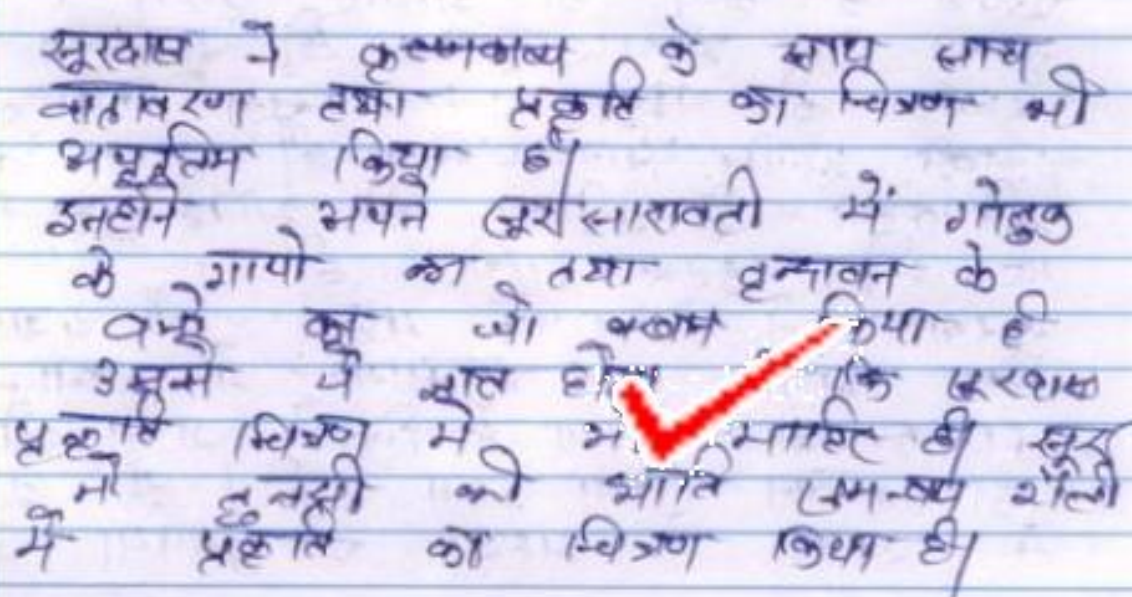 सूरदास ने कृष्णकाव्य के साथ साथ
वातावरण तथा प्रकृति का चित्रण भी
किया है।
इनहोने अपने में गोकुल
के गायो का तथा वृन्दावन के
का जो किया है
उससे ये ज्ञात होता कि सूरदास
प्रकृति चित्रण मे है। सूर
ने तुलसी की भाति समन्वय शैली
में प्रकृति का चित्रण किया है।